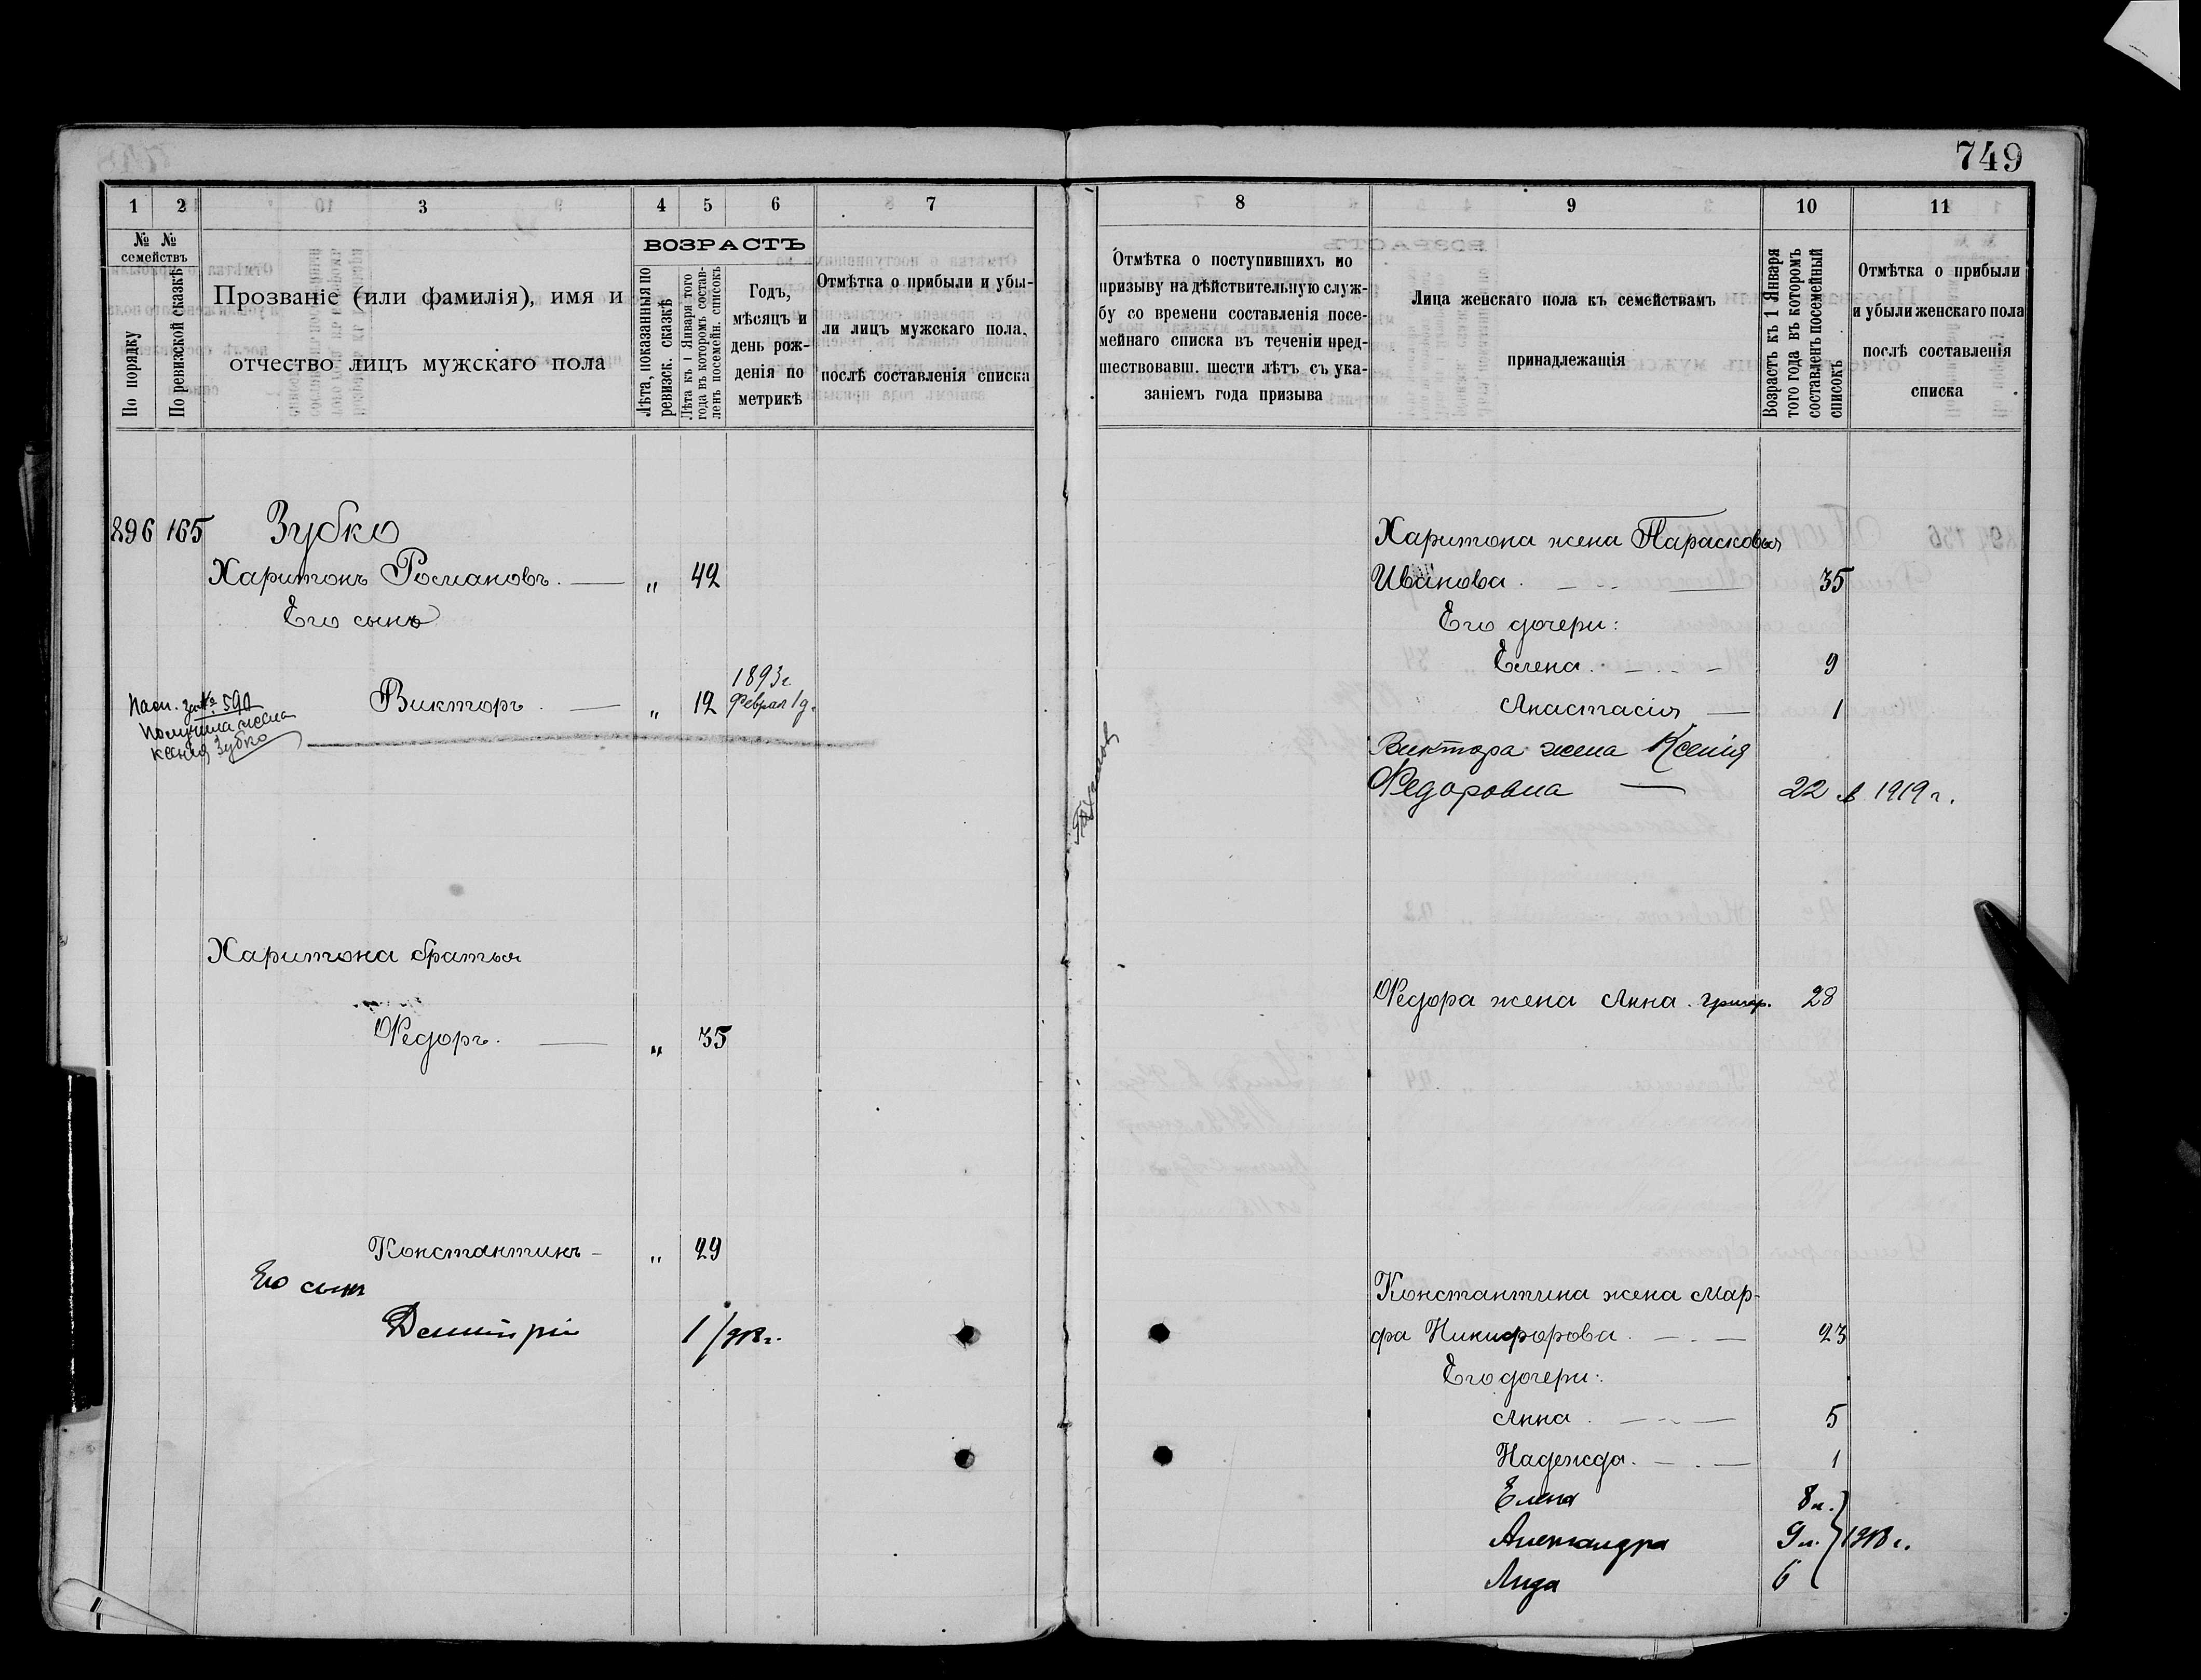 749
1 2 3 4 5 6 7
№ № семействъ
По порядку
По ревизской сказкѣ
Прозваніе (или фамилія), имя и
отчество лицъ мужскаго пола
ВОЗРАСТЪ
Лѣта, показанныя по
ревизск. сказкѣ
Лѣта къ 1 Января того
года въ которомъ состав-
ленъ посемейн. списокъ
Годъ,
мѣсяцъ и
день рож-
денія по
метрикѣ
Отмѣтка о прибыли и убы-
ли лицъ мужскаго пола,
послѣ составленія списка
896 165 Зубко
Харитонъ Романовъ. — „ 42
Его сынъ
1893г.
Викторъ. — „ 12 Февраля 1 д.
Пасп. за № 590
получила жена
Ксенія Зубко
Харитона братья
Федоръ. — „ 35
Константинъ - „ 29
Его сынъ
Демитрій 1/918г.
8 9 10 11
Отмѣтка о поступившихъ по
призыву на дѣйствительную служ-
бу со времени составленія посе-
мейнаго списка въ теченіи пред-
шествовавш. шести лѣтъ съ ука-
заніемъ года призыва
Лица женскаго пола къ семействамъ
принадлежащія
Возрастъ къ 1 Января
того года въ которомъ
составленъ посемейный
списокъ
Отмѣтка о прибыли
и убыли женскаго пола
послѣ составленія
списка
Харитона жена Парасковья
Иванова. — 35
Его дочери:
Елена. — 9
Анастасія — 1
Виктора жена Ксенія
Федоровна — 22 в 1919 г.
Федора жена Анна. Григор. 28
Константина жена Мар-
фа Никифорова. — 23
Его дочери:
Анна. — 5
Надежда. — 1
Елена 8 л.
Александра 9 л. 1918 г.
Лида 6